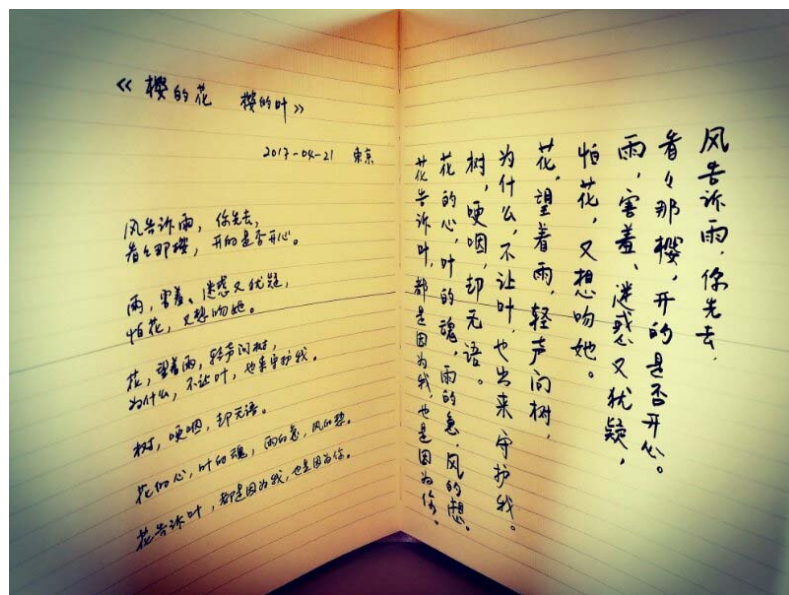 《樱的花 樱的叶》
2017-04-21 東京
风告诉雨，你先去，
看々那樱，开的是否开心。
雨，害羞、迷惑又犹疑，
怕花，又想吻她。
花，望着雨，轻声问树，
为什么，不让叶，也来守护我。
树，哽咽，却无语。
花的心，叶的魂，雨的急，风的想。
花告诉叶，都是因为我，也是因为你。
风告诉雨，你先去，
看々那樱，开的是否开心。
雨，害羞、迷惑又犹疑，
怕花，又想吻她。
花，望着雨，轻声问树，
为什么，不让叶，也出来守护我。
树，哽咽，却无语。
花的心，叶的魂，雨的急，风的想。
花告诉叶，都是因为我，也是因为你。